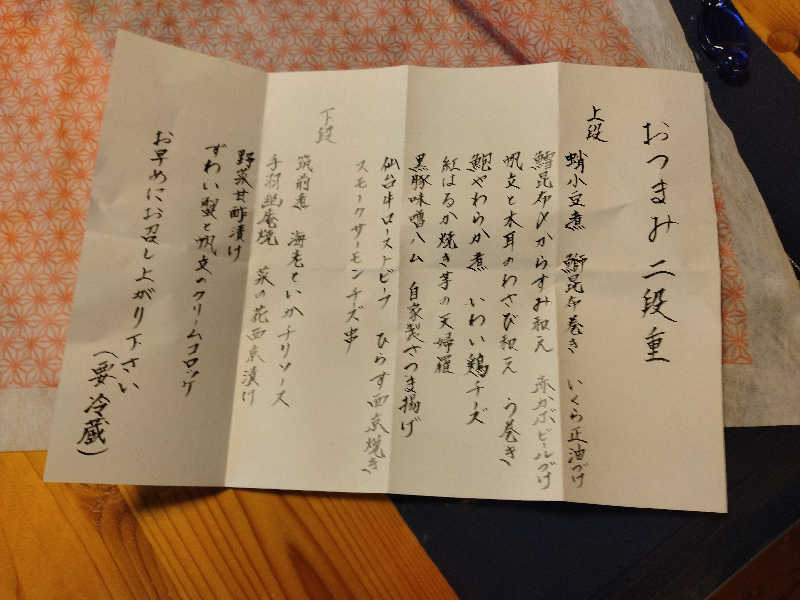 おつまみ二段重
上段
蛸小豆煮　鰤昆布巻き　いくら正油づけ
鱈昆布〆からすみ和え　赤かぶビールづけ
帆立と木耳のわさび和え　う巻き
鮑やわらか煮　いわい鶏チーズ
紅はるか焼き芋の天婦羅
黒豚味噌ハム　自家製さつま揚げ
仙台牛ローストビーフ　ひらす西京焼き
スモークサーモンチーズ串
下段
筑前煮　海老といかチリソース
手羽幽庵焼　菜の花西京漬け
野菜甘酢漬け
ずわい蟹と帆立のクリームコロッケ
お早めにお召し上がり下さい
(要冷蔵)